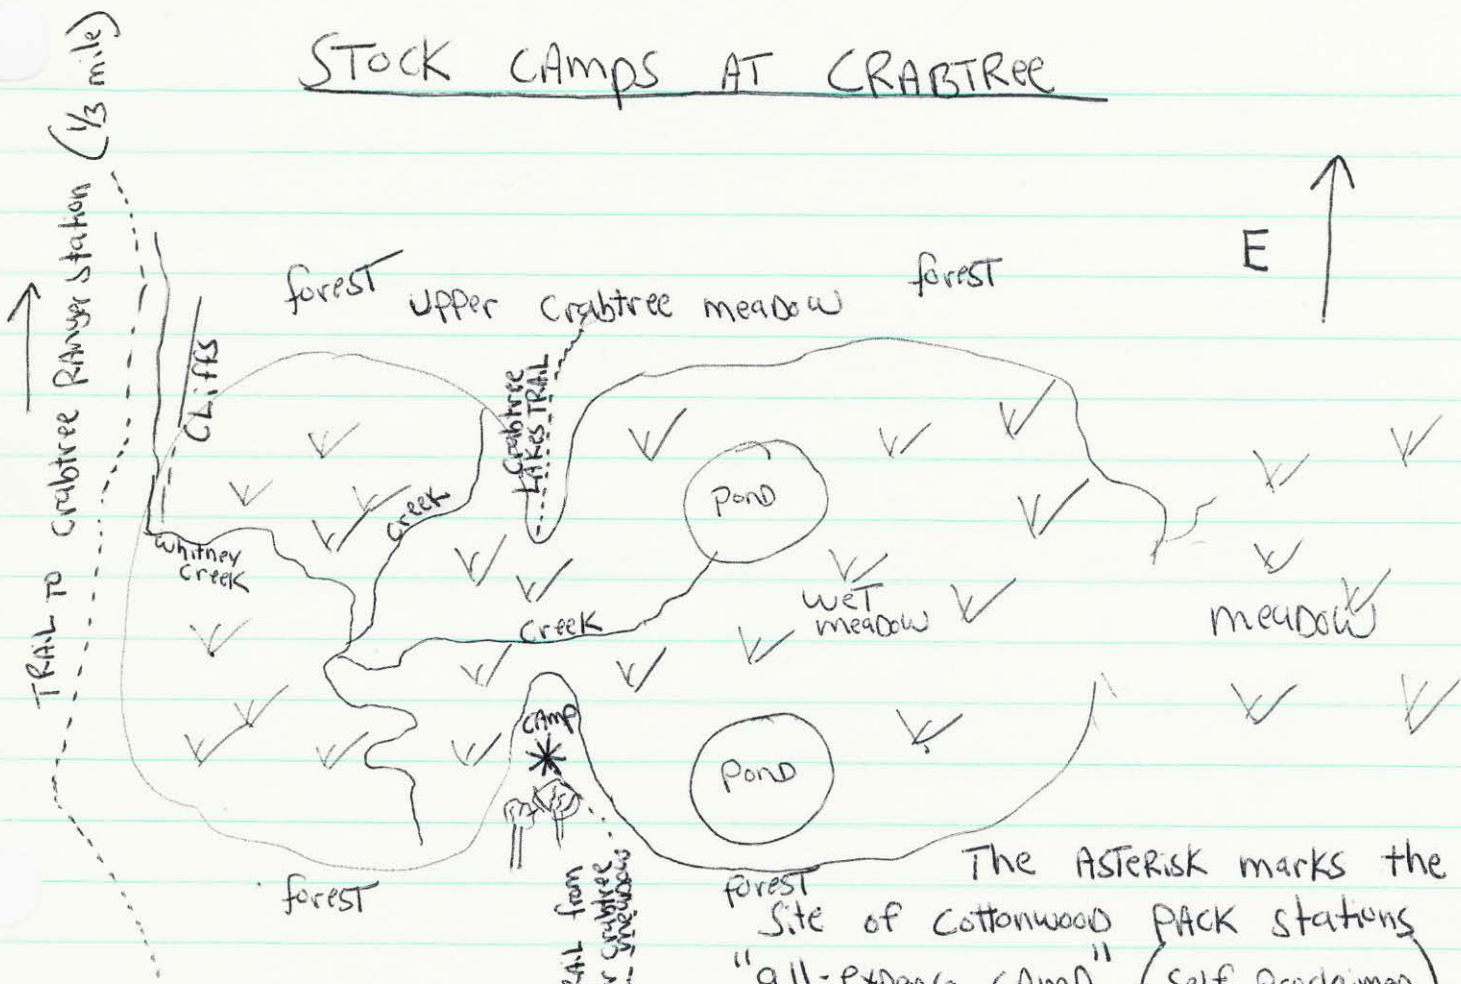 STOCK CAMPS AT CRABTREE
TRAIL TO Crabtree RANger Station (1/3 mile)
E
forest
forest
Upper Crabtree meaDow
CLiffs
Crabtree
LAKES TRAIL
Creek
PonD
Whitney
Creek
Creek
WeT
meaDow
meaDow
CAmp
PonD
forest
forest
from
Crabtree
meadow
The ASTeRisk marks the
Site of CottonwooD PACK Stations
"all-expense CAmp" (Self Proclaimed)